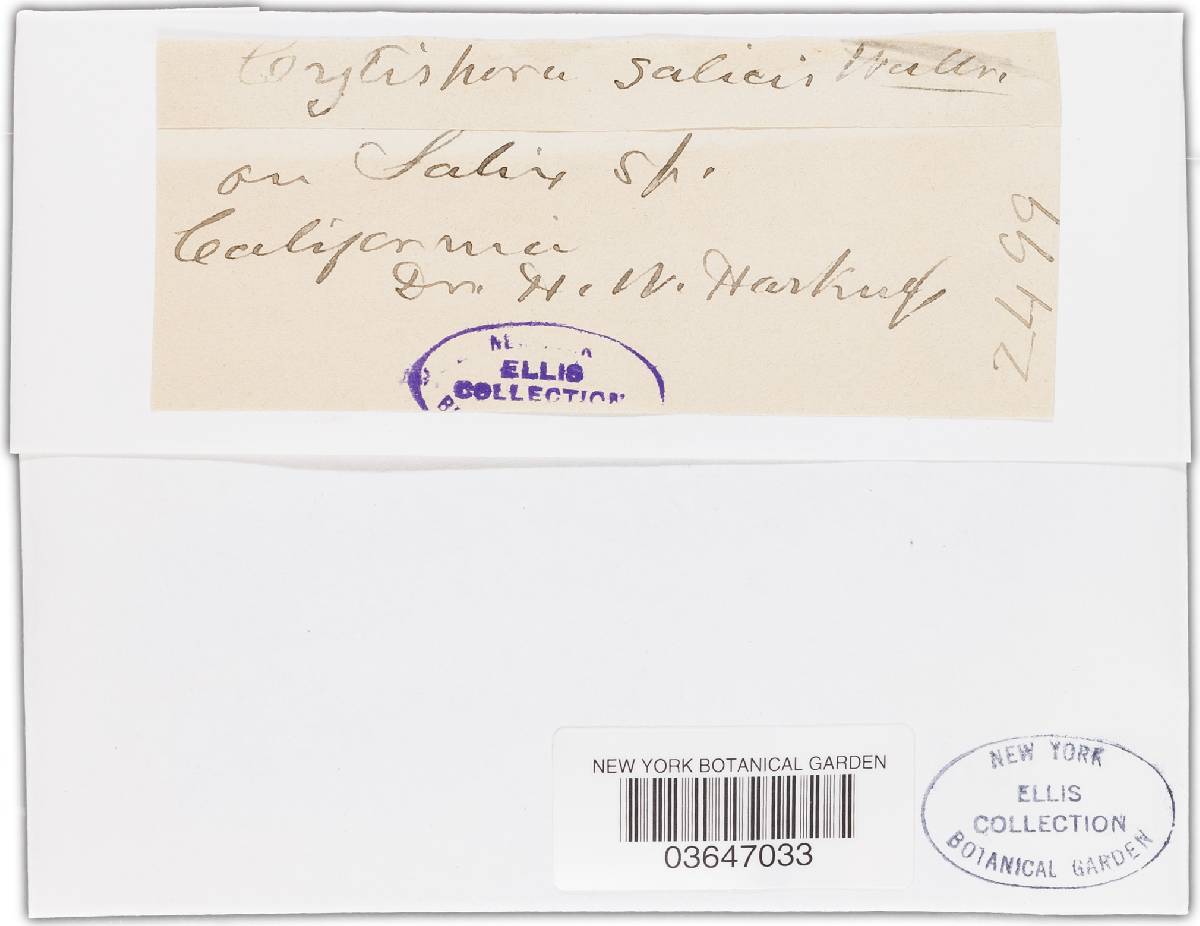 Crytispora salicis Wallr.
on Salix sp.
California
Dr. H. W. Harkness
2499
ELLIS
COLLECTION
NEW YORK BOTANICAL GARDEN
03647033
NEW YORK
ELLIS
COLLECTION
BOTANICAL GARDEN